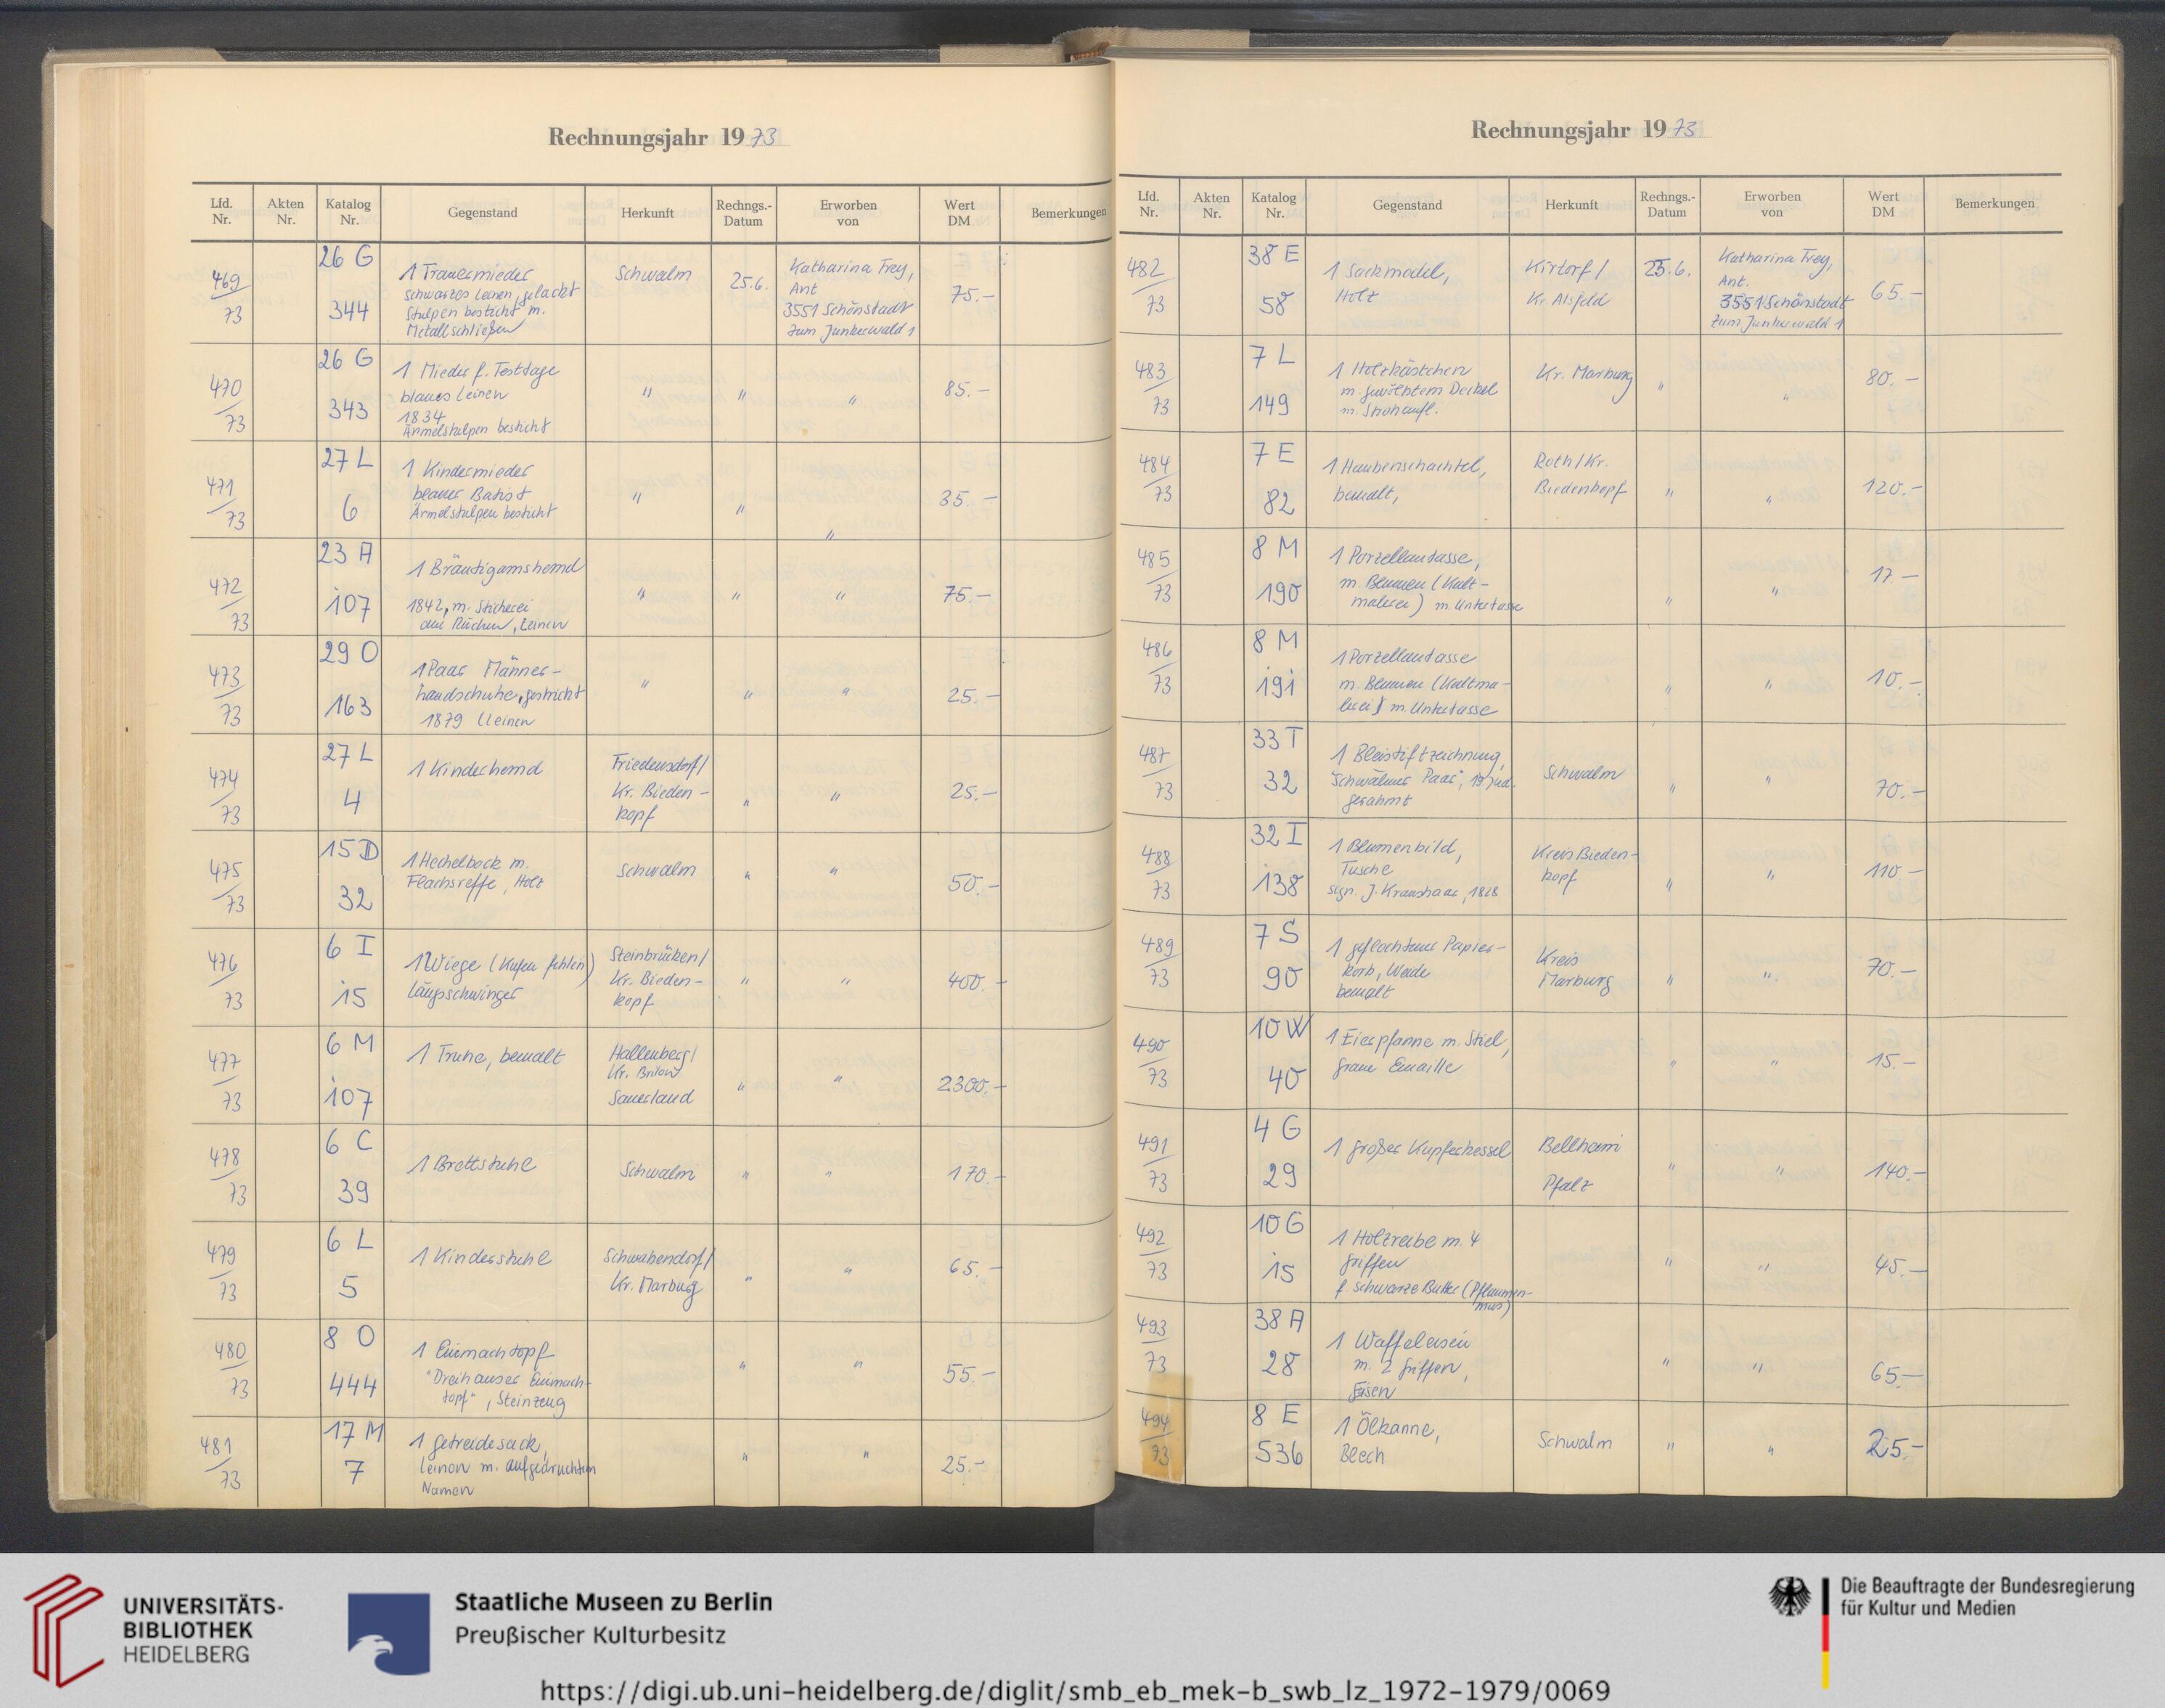 Rechnungsjahr 1973
Lfd. Nr. Akten Nr. Katalog Nr. Gegenstand Herkunft Rechngs.-Datum Erworben von Wert DM Bemerkungen
469/73 26 G 344
1 Trauermieder
schwarzes Leinen, gelackt
Stulpen besticht m.
Metallschließen
Schwalm
25.6.
Katharina Frey,
Ant
3551 Schönstadt
zum Junkerwald 1
75.-
470/73 26 G 343
1 Mieder f. Festtage
blaues Leinen
1834
Ärmelstulpen besticht
" " "
85.-
471/73 27 L 6
1 Kindermieder
blauer Batist
Ärmelstulpen besticht
" " "
35.-
472/73 23 A 107
1 Bräutigamshemd
1842, m. Stickerei
am Rücken, Leinen
" " "
75.-
473/73 29 O 163
1 Paar Männer-
handschuhe, gestrickt
1879 (Leinen
" " "
25.-
474/73 27 L 4
1 Kinderhemd
Friedensdorf/
Kr. Bieden-
kopf
" "
25.-
475/73 15 D 32
1 Hechelbock m.
Flachsreffe, Holz
Schwalm
" "
50.-
476/73 6 I 15
1 Wiege (Kufen fehlen)
Längsschwinger
Steinbrücken/
Kr. Bieden-
kopf
" "
400.-
477/73 6 M 107
1 Truhe, bemalt
Hallenberg/
Kr. Brilon
Sauerland
" "
2300.-
478/73 6 C 39
1 Brettstuhl
Schwalm
" "
170.-
479/73 6 L 5
1 Kinderstuhl
Schwabendorf/
Kr. Marburg
" "
65.-
480/73 8 O 444
1 Einmachtopf
"Dreihauser Einmach-
topf", Steinzeug
" "
55.-
481/73 17 M 7
1 Getreidesack,
Leinen m. aufgedruckten
Namen
" "
25.-
Rechnungsjahr 1973
Lfd. Nr. Akten Nr. Katalog Nr. Gegenstand Herkunft Rechngs.-Datum Erworben von Wert DM Bemerkungen
482/73 38 E 58
1 Sackmodel,
Holz
Kirtorf/
Kr. Alsfeld
25.6.
Katharina Frey,
Ant.
3551 Schönstadt
Zum Junkerwald 1
65.-
483/73 7 L 149
1 Holzkästchen
m. gewölbtem Deckel
m. Strohaufl.
Kr. Marburg
" "
80.-
484/73 7 E 82
1 Haubenschachtel,
bemalt,
Roth/Kr.
Biedenkopf
" "
120.-
485/73 8 M 190
1 Porzellantasse,
m. Blumen (Kalt-
malerei) m. Untertasse
" "
17.-
486/73 8 M 191
1 Porzellantasse
m. Blumen (Kaltma-
lerei) m. Untertasse
" "
10.-
487/73 33 T 32
1 Bleistiftzeichnung,
"Schwälmer Paar", 19. Jhd.
gerahmt
Schwalm
" "
70.-
488/73 32 I 138
1 Blumenbild,
Tusche
sign. J. Kraushaar, 1828
Kreis Bieden-
kopf
" "
110.-
489/73 7 S 90
1 geflochtener Papier-
korb, Weide
bemalt
Kreis
Marburg
" "
70.-
490/73 10 W 40
1 Eierpfanne m. Stiel,
graue Emaille
" "
15.-
491/73 4 G 29
1 großer Kupferkessel
Bellheim
Pfalz
" "
140.-
492/73 10 G 15
1 Holzreibe m. 4
Griffen
f. schwarze Butter (Pflaumen-
mus)
" "
45.-
493/73 38 A 28
1 Waffeleisen
m. 2 Griffen,
Eisen
" "
65.-
494/73 8 E 536
1 Ölkanne,
Blech
Schwalm
" "
25.-
UNIVERSITÄTS-
BIBLIOTHEK
HEIDELBERG
Staatliche Museen zu Berlin
Preußischer Kulturbesitz
Die Beauftragte der Bundesregierung
für Kultur und Medien
https://digi.ub.uni-heidelberg.de/diglit/smb_eb_mek-b_swb_lz_1972-1979/0069